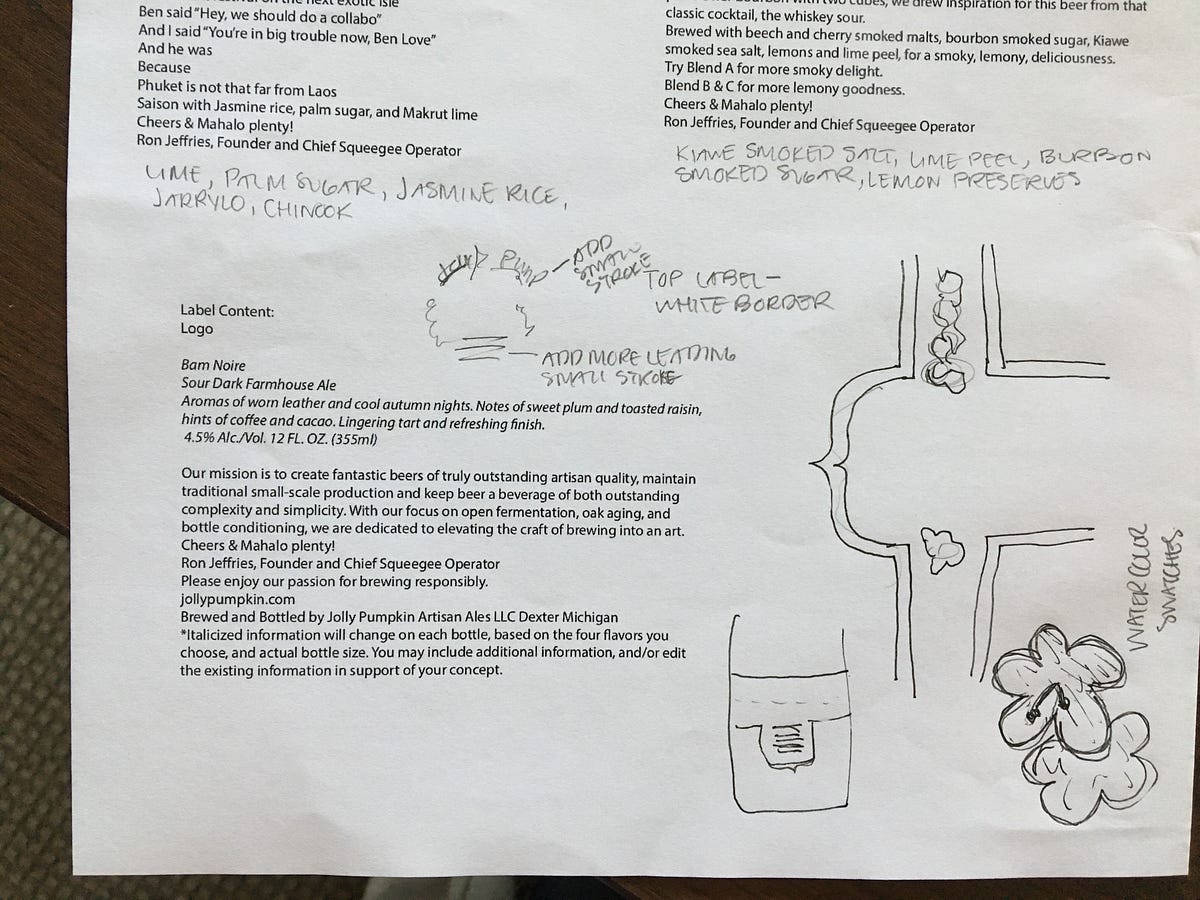 the next exotic isle
Ben said “Hey, we should do a collabo”
And I said “You’re in big trouble now, Ben Love”
And he was
Because
Phuket is not that far from Laos
Saison with Jasmine rice, palm sugar, and Makrut lime
Cheers & Mahalo plenty!
Ron Jeffries, Founder and Chief Squeegee Operator
LIME, PALM SUGAR, JASMINE RICE,
JARRYLO, CHINOOK
with two cubes, we drew inspiration for this beer from that
classic cocktail, the whiskey sour.
Brewed with beech and cherry smoked malts, bourbon smoked sugar, Kiawe
smoked sea salt, lemons and lime peel, for a smoky, lemony, deliciousness.
Try Blend A for more smoky delight.
Blend B & C for more lemony goodness.
Cheers & Mahalo plenty!
Ron Jeffries, Founder and Chief Squeegee Operator
KIAWE SMOKED SALT, LIME PEEL, BURBON
SMOKED SUGAR, LEMON PRESERVES
ADD
SMALL
STROKE
TOP LABEL –
WHITE BORDER
ADD MORE LEADING
SMALL STROKE
Label Content:
Logo
Bam Noire
Sour Dark Farmhouse Ale
Aromas of worn leather and cool autumn nights. Notes of sweet plum and toasted raisin,
hints of coffee and cacao. Lingering tart and refreshing finish.
4.5% Alc./Vol. 12 FL. OZ. (355ml)
Our mission is to create fantastic beers of truly outstanding artisan quality, maintain
traditional small-scale production and keep beer a beverage of both outstanding
complexity and simplicity. With our focus on open fermentation, oak aging, and
bottle conditioning, we are dedicated to elevating the craft of brewing into an art.
Cheers & Mahalo plenty!
Ron Jeffries, Founder and Chief Squeegee Operator
Please enjoy our passion for brewing responsibly.
jollypumpkin.com
Brewed and Bottled by Jolly Pumpkin Artisan Ales LLC Dexter Michigan
*Italicized information will change on each bottle, based on the four flavors you
choose, and actual bottle size. You may include additional information, and/or edit
the existing information in support of your concept.
WATERCOLOR
SWATCHES